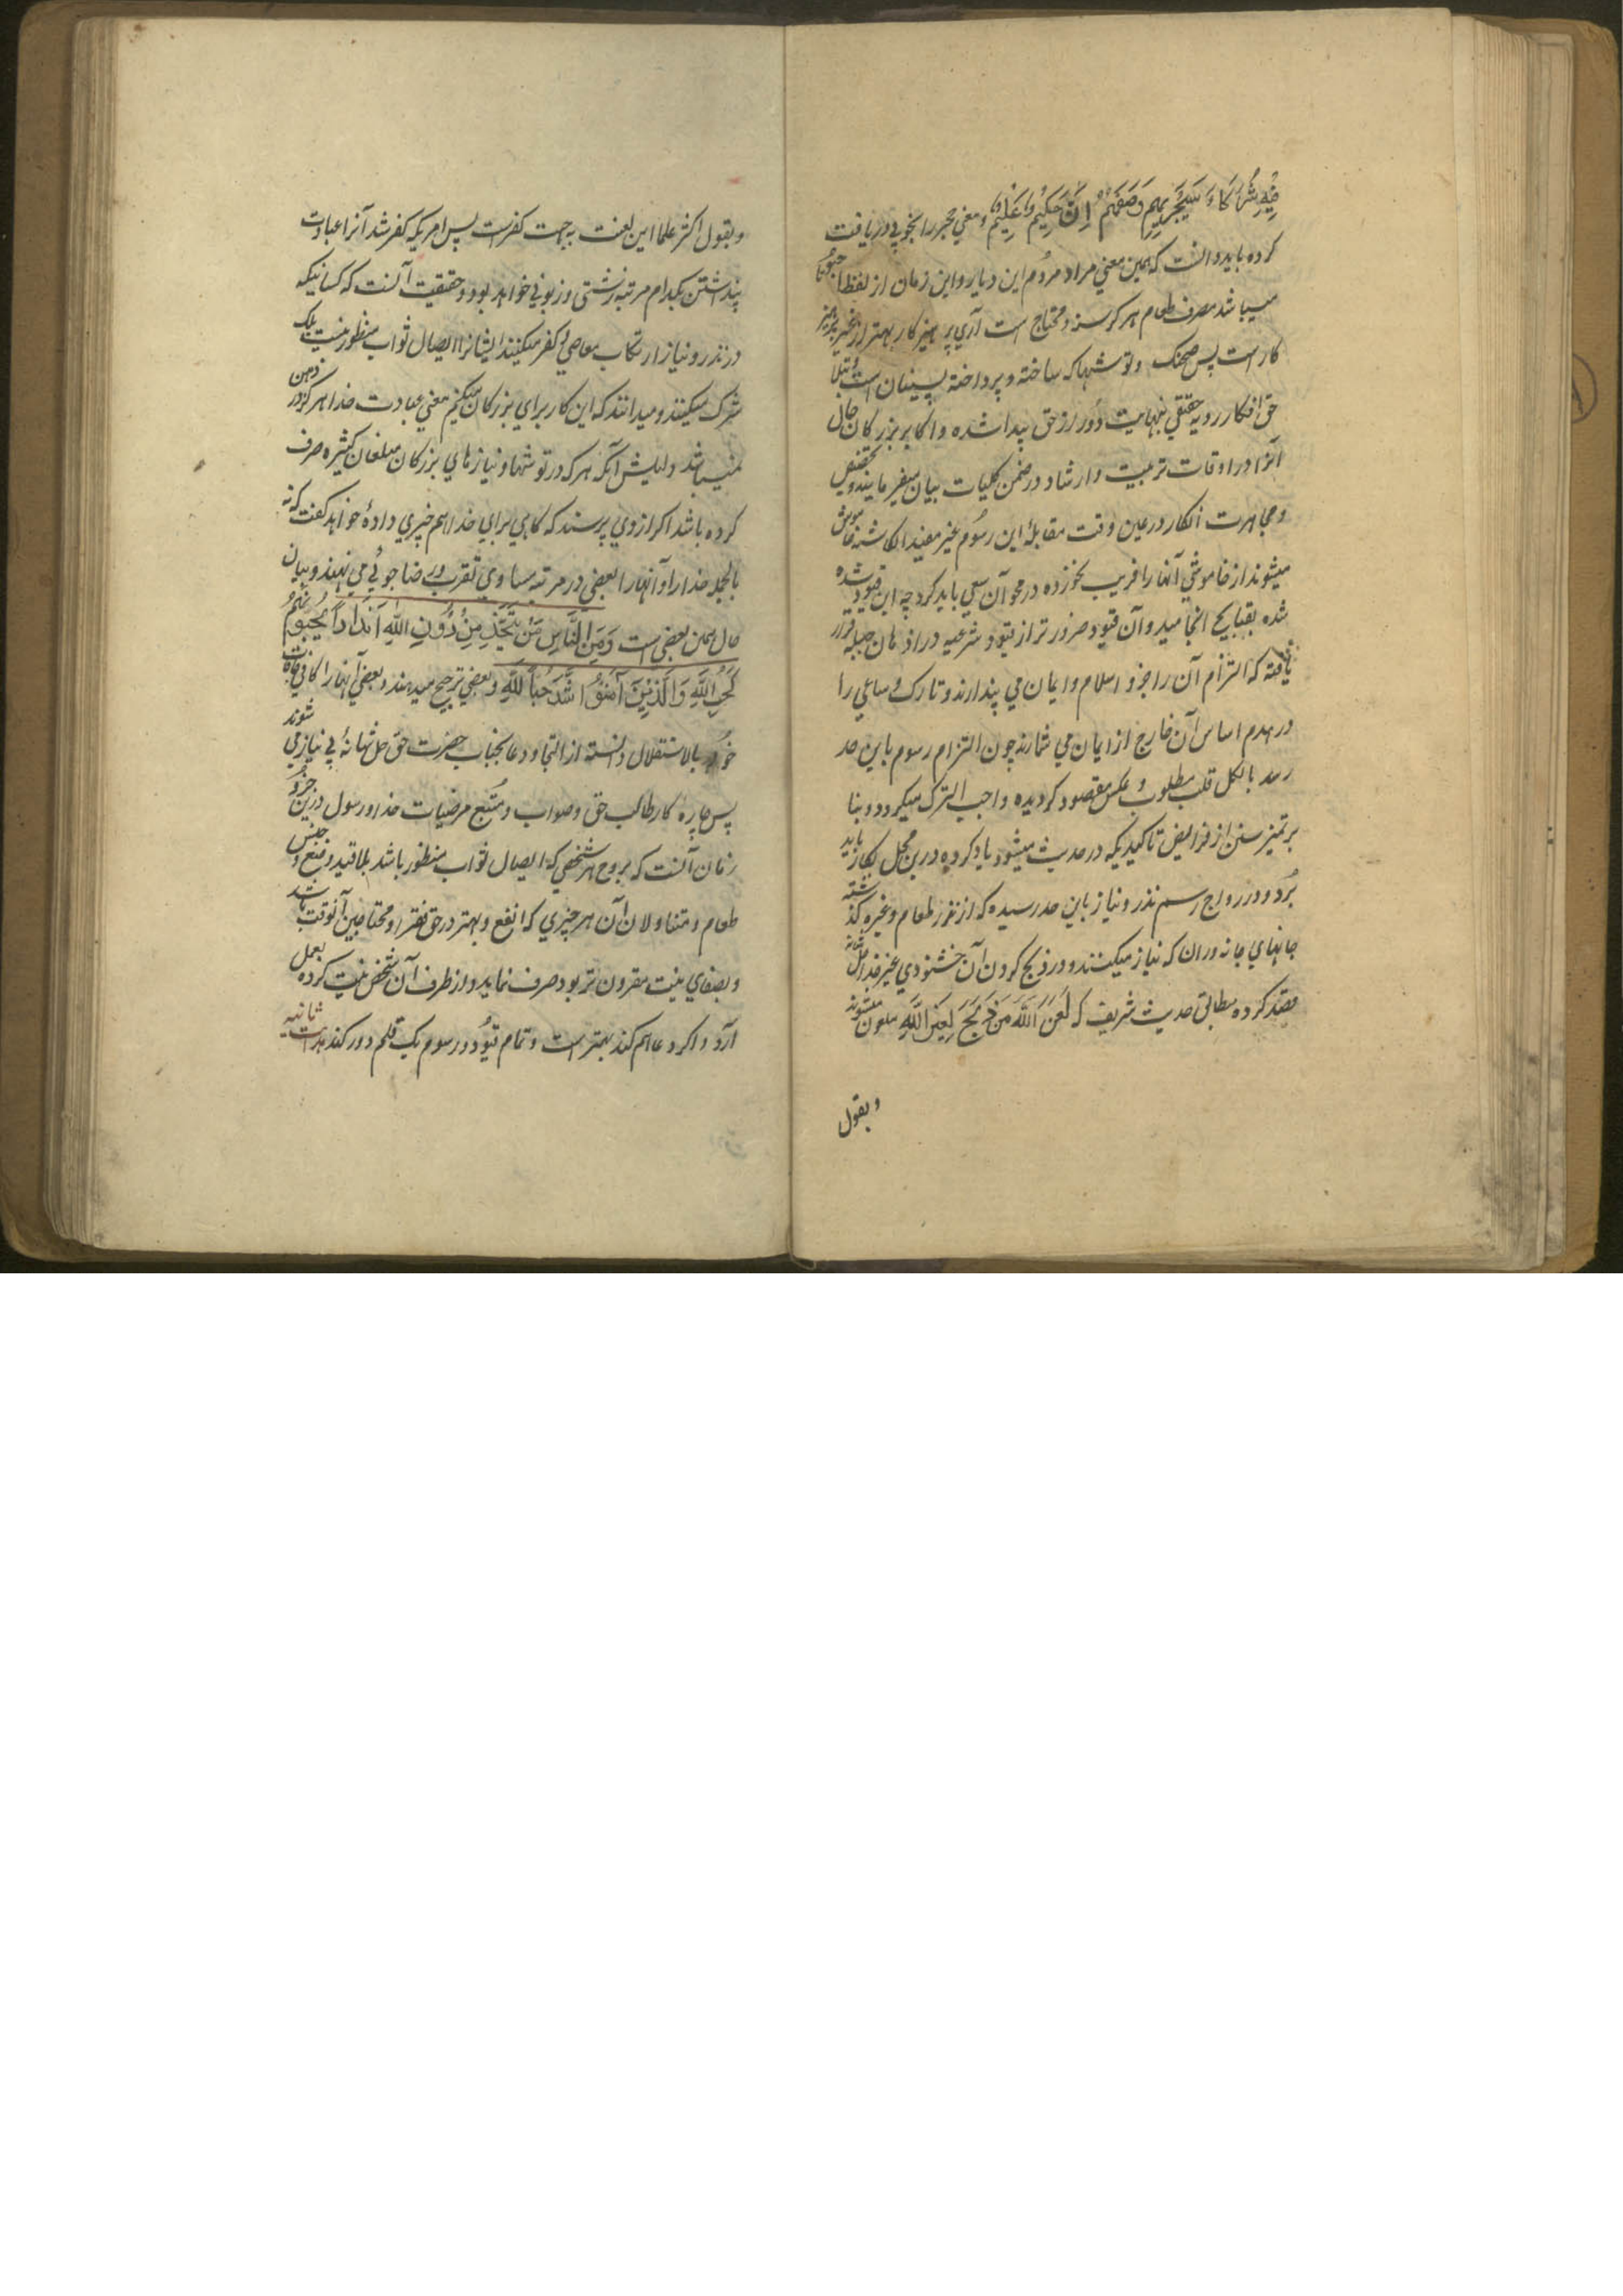 فِيْهِ شُرَكَاءُ سَيَجْزِيهِمْ وَصْفَهُمْ اِنَّهُ حَكِيْمٌ عَلِيْمٌ و معني حجر را بخوبي دريافت
كرده بايد دانست كه همين معني مراد مردم اين ديار و اين زمان از لفظ اچهوتا
ميباشد مصرف طعام هر گرسنه و محتاج است آري پرهيزكار بهتر از غير پرهيز
كار است پس صحنك و توشها كه ساخته و پرداخته پسينيان است
حق افكار رويه حقيقي بنهايت دور از حق پيدا شده و اكابر بزرگان حال
آنرا در اوقات تربيت و ارشاد در ضمن كليات بيان ميفرمايند و تخصيص
و مجاهرت انكار در عين وقت مقابلهٔ اين رسوم غير مفيد انگاشته خاموش
ميشوند از خاموشي آنها فريب نخورده در محو آن سعي بايد كرد چه اين قيود
شده بقبايح انجاميد و آن قيود ضرورتر از قيود شرعيه در اذهان جهله قرار
يافته كه التزام آن را جزو اسلام و ايمان مي پندارند و تارك و ساعي را
در هدم اساس آن خارج از ايمان مي شمارند چون التزام رسوم باين حد
رسد بالكل قلب مطلوب و عكس مقصود گرديده واجب الترك ميگردد و بنا
بر تميز سنن از فرايض تاكيديكه در حديث ميشود ياد كرده درين محل بكار بايد
برد و در رواج رسم نذر و نياز باين حد رسيده كه از نذر طعام و غيره گذشته
جانهاي جانوران كه نياز ميكنند و در ذبح كردن آن خشنودي غير خدا
قصد كرده مطابق حديث شريف كه لَعَنَ اللّٰهُ مَنْ ذَبَحَ لِغَيْرِ اللّٰهِ ملعون ميشوند
و بقول
و بقول اكثر علما اين لعنت به جهت كفر است پس امريكه كفر شد آنرا عبادت
پنداشتن بكدام مرتبه زشتي و زبوني خواهد بود و حقيقت آنست كه كسانيكه
در نذر و نياز ارتكاب معاصي و كفر ميكنند ايشانرا ايصال ثواب منظور نيست بلكه
شرك ميكنند و ميدانند كه اين كار براي بزرگان ميكنم معني عبادت خدا هرگز در ذهن
نميباشد دليلش آنكه هر كه در توشها و نيازهاي بزرگان مبلغان كثيره صرف
كرده باشد اگر از وي پرسند كه گاهي براي خدا هم چيزي دادهٔ خواهد گفت كه نه
بالجمله خدا را و آنها را بعضي در مرتبه مساوي تقرب و رضا جوئي مي نهند و بيان
حال همين بعضي است وَمِنَ النَّاسِ مَنْ يَتَّخِذُ مِنْ دُوْنِ اللّٰهِ اَنْدَادًا يُحِبُّوْنَهُمْ
كَحُبِّ اللّٰهِ وَالَّذِيْنَ آمَنُوْا اَشَدُّ حُبًّا لِلّٰهِ و بعضي ترجيح ميدهند و بعضي آنها را كافي
خود بالاستقلال دانسته از التجا و دعا بجناب حضرت حق جل شانهٔ بي نياز مي شوند
پس چاره كار طالب حق و صواب و متبع مرضيات خدا و رسول درين جزو
زمان آنست كه بروح هر شخصي كه ايصال ثواب منظور باشد بلا قيد وضع و جنس
طعام و متناولان آن هر چيزي كه انفع و بهتر در حق فقرا و محتاجين آنوقت باشد
و بصفاي نيت مقرون تر بود صرف نمايد و از طرف آن شخص نيت كرده بعمل
آرد و اگر دعا هم كند بهتر است و تمام قيود و رسوم يك قلم دور كند هدايت ثانيه